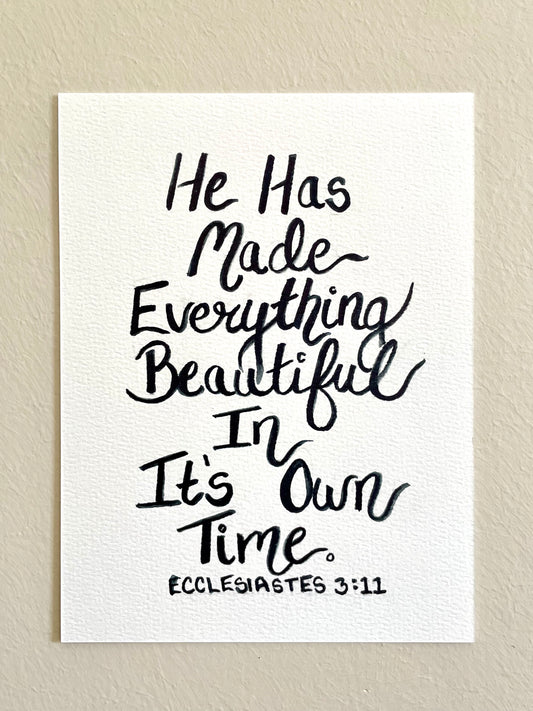 He Has
Made
Everything
Beautiful
In
It's Own
Time.
ECCLESIASTES 3:11